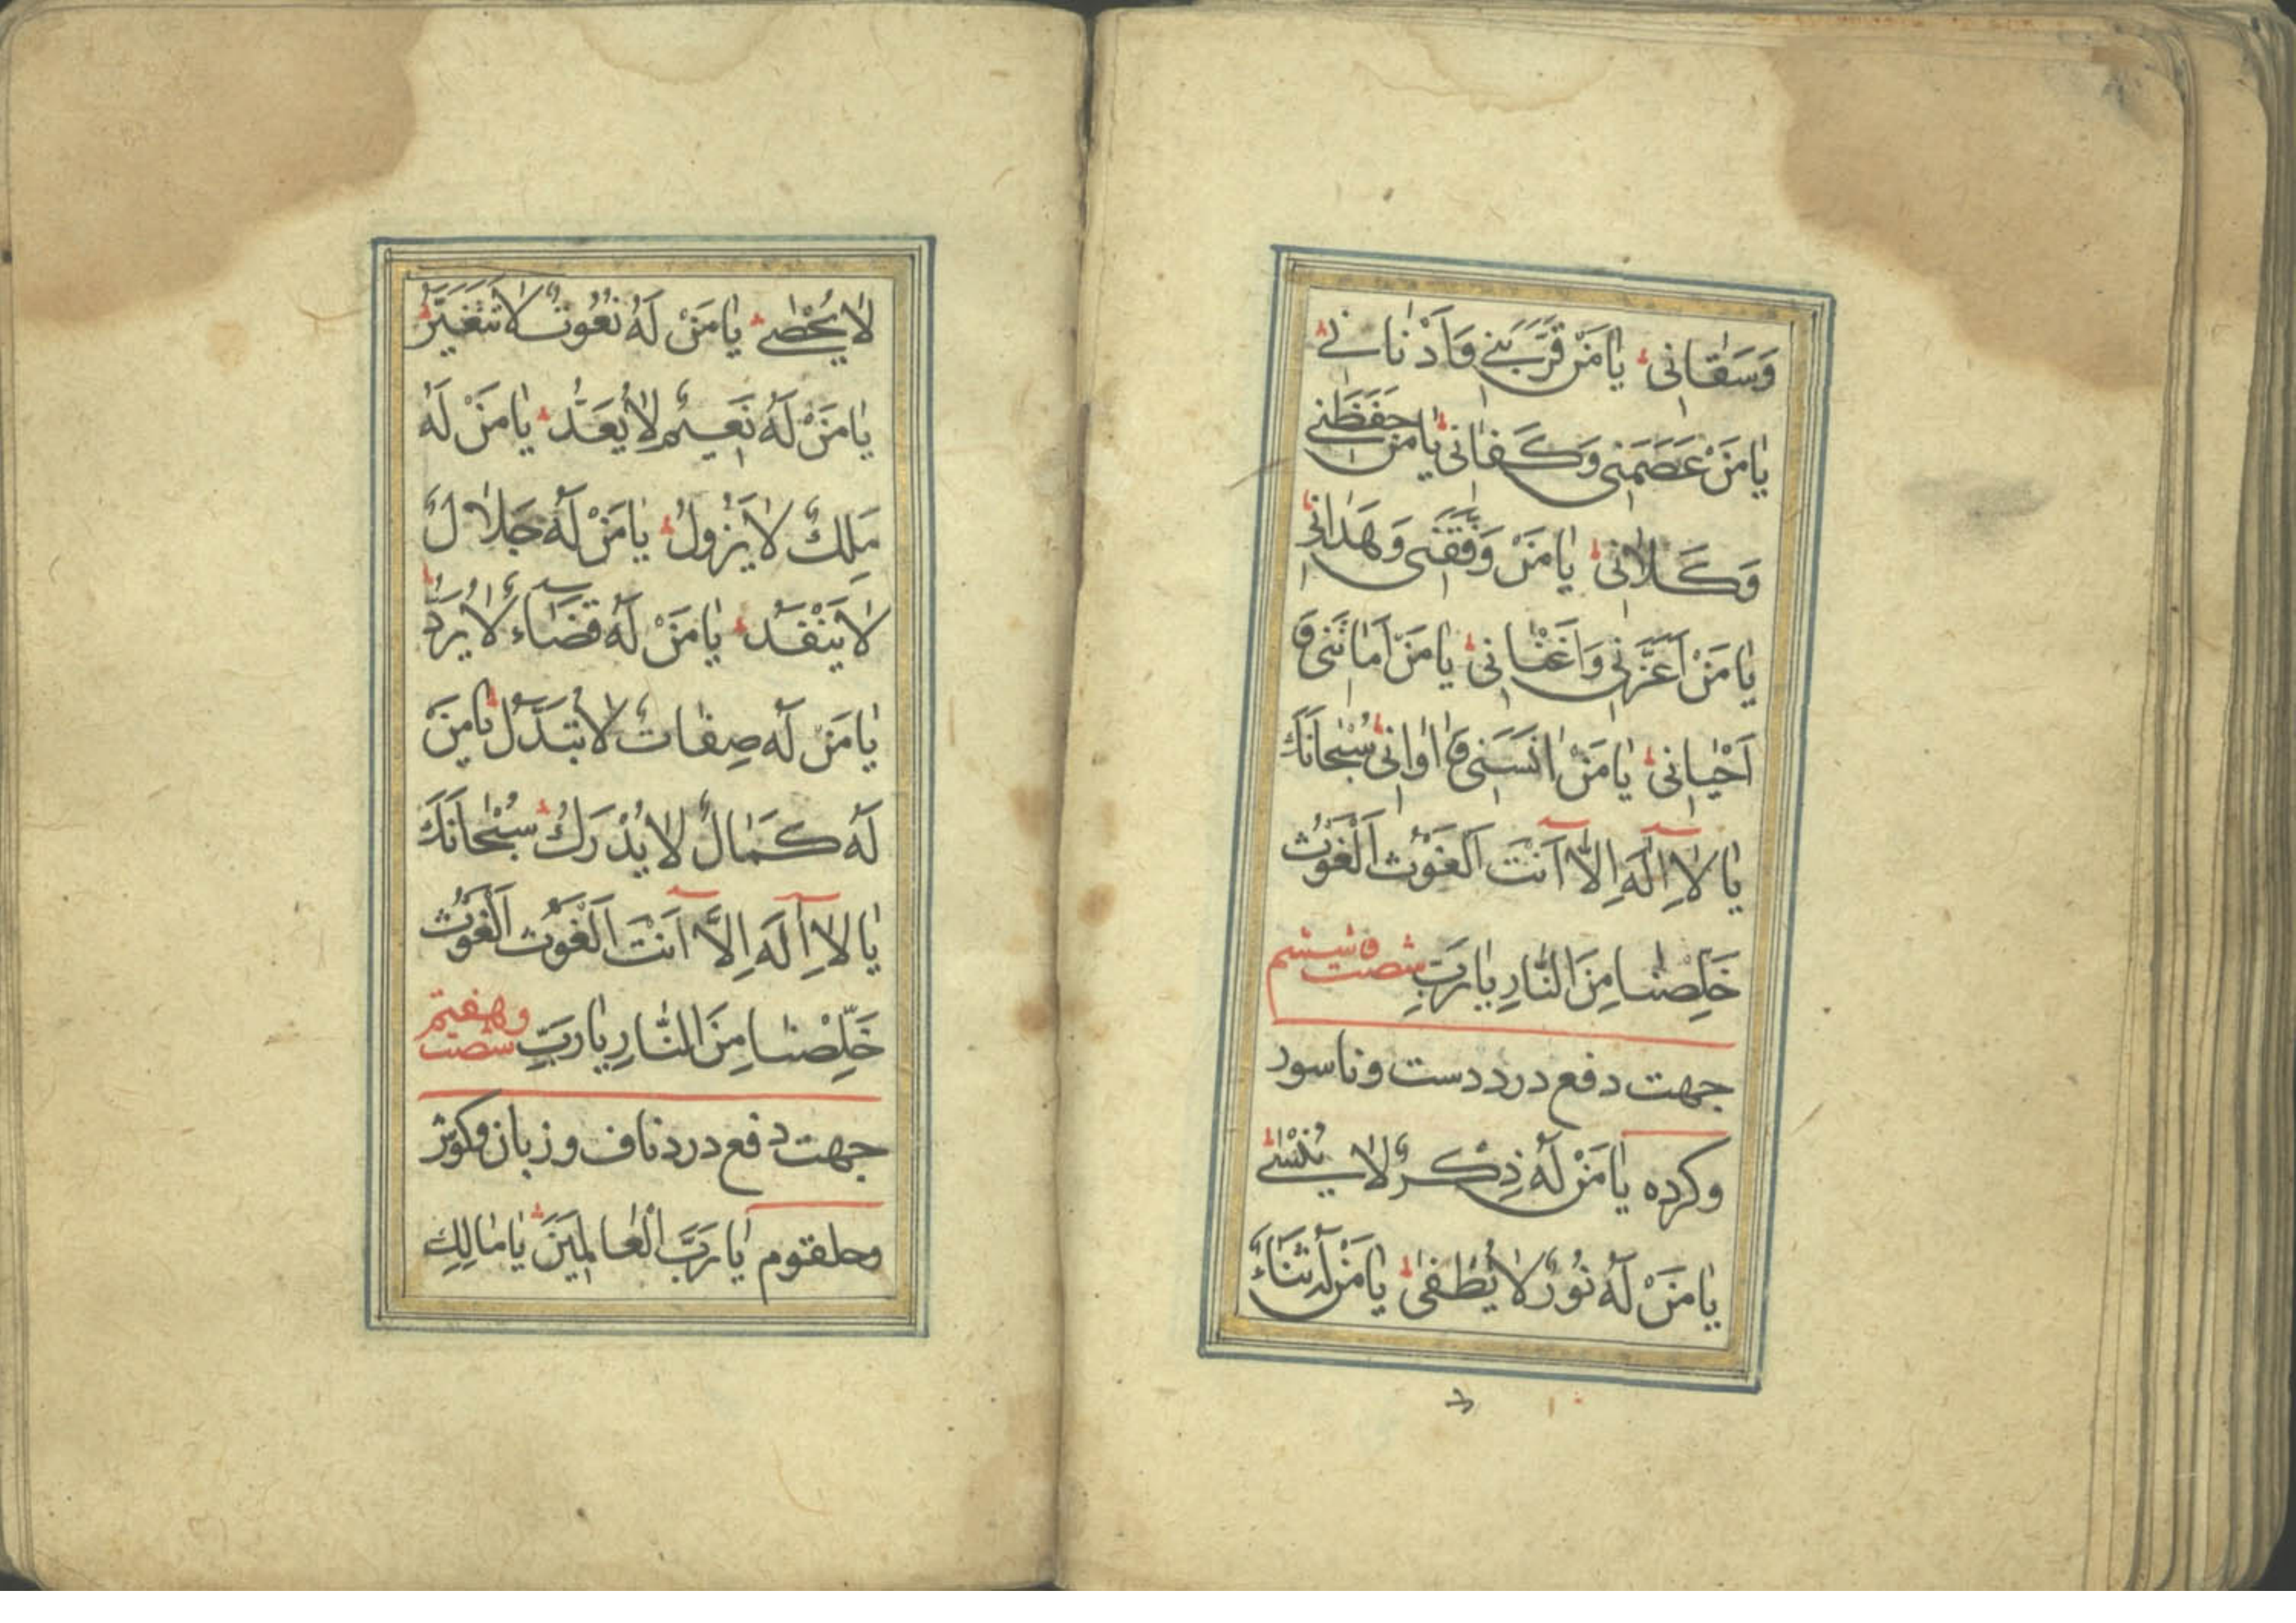 وَسَقَانِی یَا مَنْ قَرَّبَنِی وَاَدْنَانِی
یَا مَنْ عَصَمَنِی وَکَفَانِی یَا مَنْ حَفَظَنِی
وَکَلَانِی یَا مَنْ وَفَّقَنِی وَهَدَانِی
یَا مَنْ اَعَزَّنِی وَاَغْنَانِی یَا مَنْ اَمَاتَنِی وَ
اَحْیَانِی یَا مَنْ اٰنَسَنِی وَ اٰوَانِی سُبْحَانَكَ
یَا لَا اِلٰهَ اِلَّا اَنْتَ اَلْغَوْثَ اَلْغَوْثَ
خَلِّصْنَا مِنَ النَّارِ یَا رَبِّ شصت و ششم
جهت دفع درد دست و ناسور
وکرده یَا مَنْ لَهُ ذِکْرٌ لَا یُنْسٰی
یَا مَنْ لَهُ نُورٌ لَا یُطْفٰی یَا مَنْ لَهُ ثَنَاءٌ
لَا یُحْصٰی یَا مَنْ لَهُ نُعُوتٌ لَا تَتَغَیَّرُ
یَا مَنْ لَهُ نَعِیمٌ لَا یُعَدُّ یَا مَنْ لَهُ
مَلِكٌ لَا یَزُولُ یَا مَنْ لَهُ جَلَالٌ
لَا یَنْفَدُ یَا مَنْ لَهُ قَضَاءٌ لَا یُرَدُّ
یَا مَنْ لَهُ صِفَاتٌ لَا تُبَدَّلُ یَا مَنْ
لَهُ کَمَالٌ لَا یُدْرَكُ سُبْحَانَكَ
یَا لَا اِلٰهَ اِلَّا اَنْتَ اَلْغَوْثَ اَلْغَوْثَ
خَلِّصْنَا مِنَ النَّارِ یَا رَبِّ شصت وهفتم
جهت دفع درد ناف و زبان وکوش
وحلقوم یَا رَبَّ الْعَالَمِینَ یَا مَالِكَ